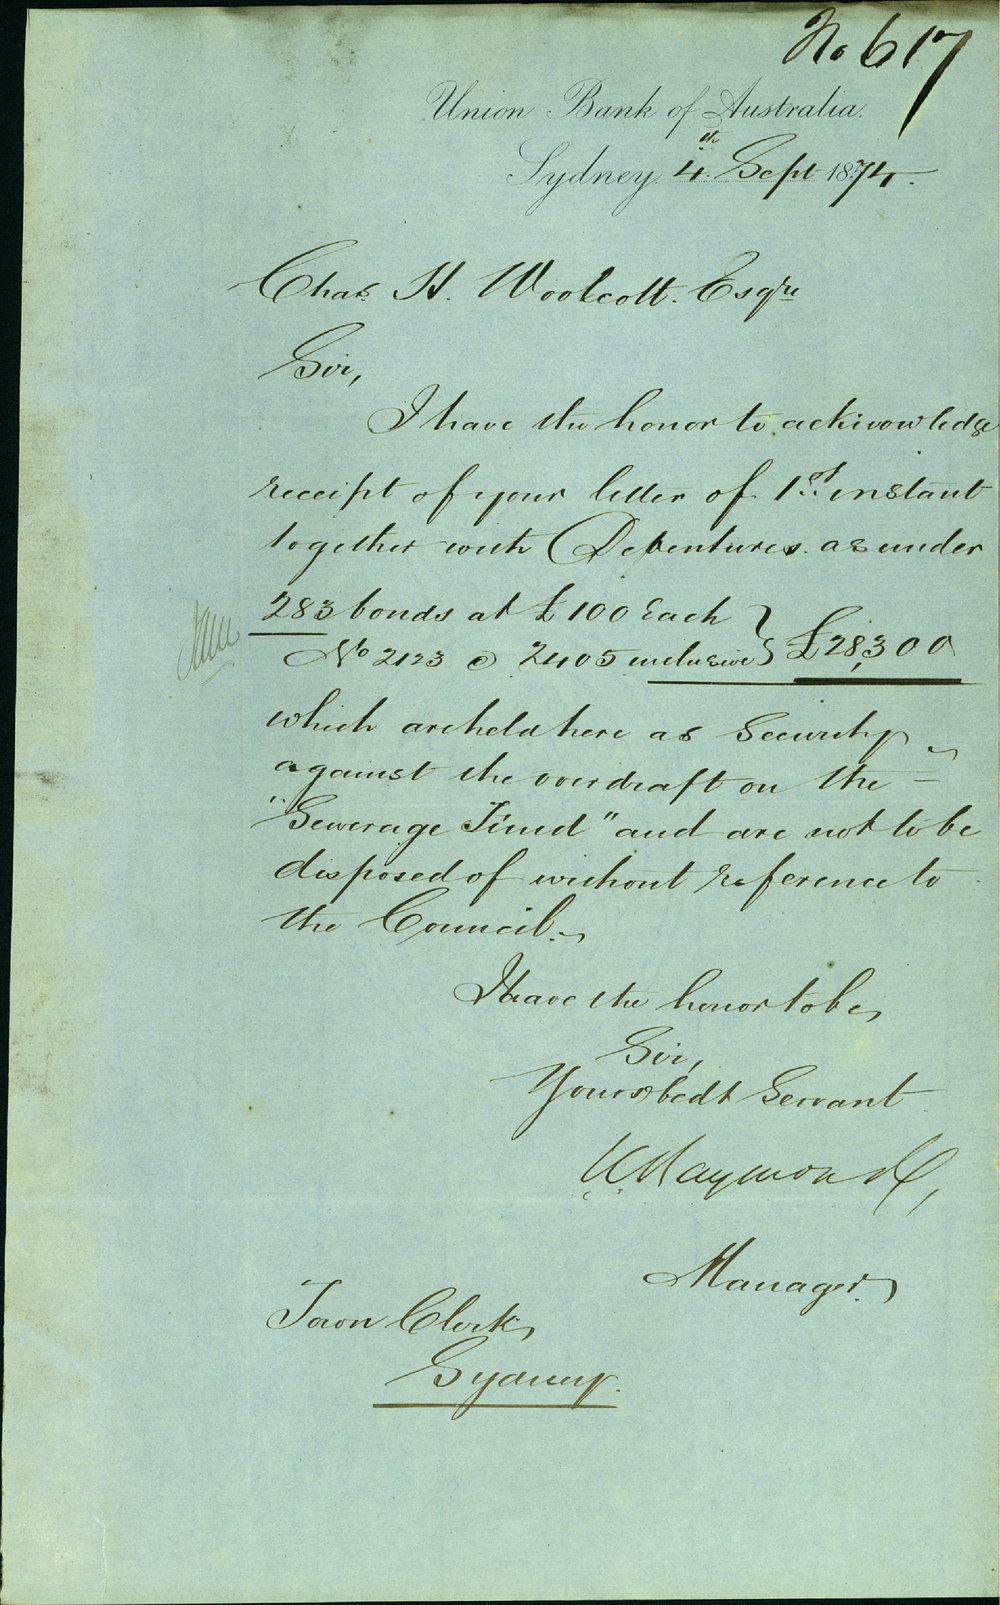 No 617
Union Bank of Australia.
Sydney 4th Sept 1874.
Chas H. Woolcott. Esqre
Sir,
I have the honor to acknowledge
receipt of your letter of 1st instant
together with Debentures as under
283 bonds at £100 Each
No 2123 @ 2405 inclusive } £28,300
which are held here as Security
against the overdraft on the
"Sewerage Fund" and are not to be
disposed of without reference to
the Council.
I have the honor to be,
Sir,
Your obedt Servant
Raymond,
Manager.
Town Clerk,
Sydney.